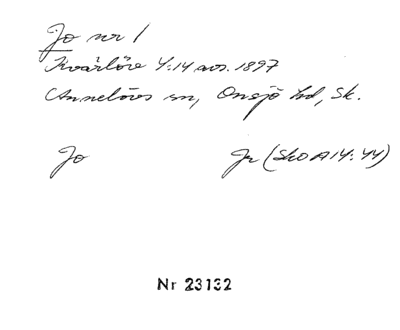 Jo nr 1
Kvärlöv 4:14 avs. 1897
Annelövs sn, Onsjö hd, Sk.
Jo Jr (SkO A14:44)
Nr 23132